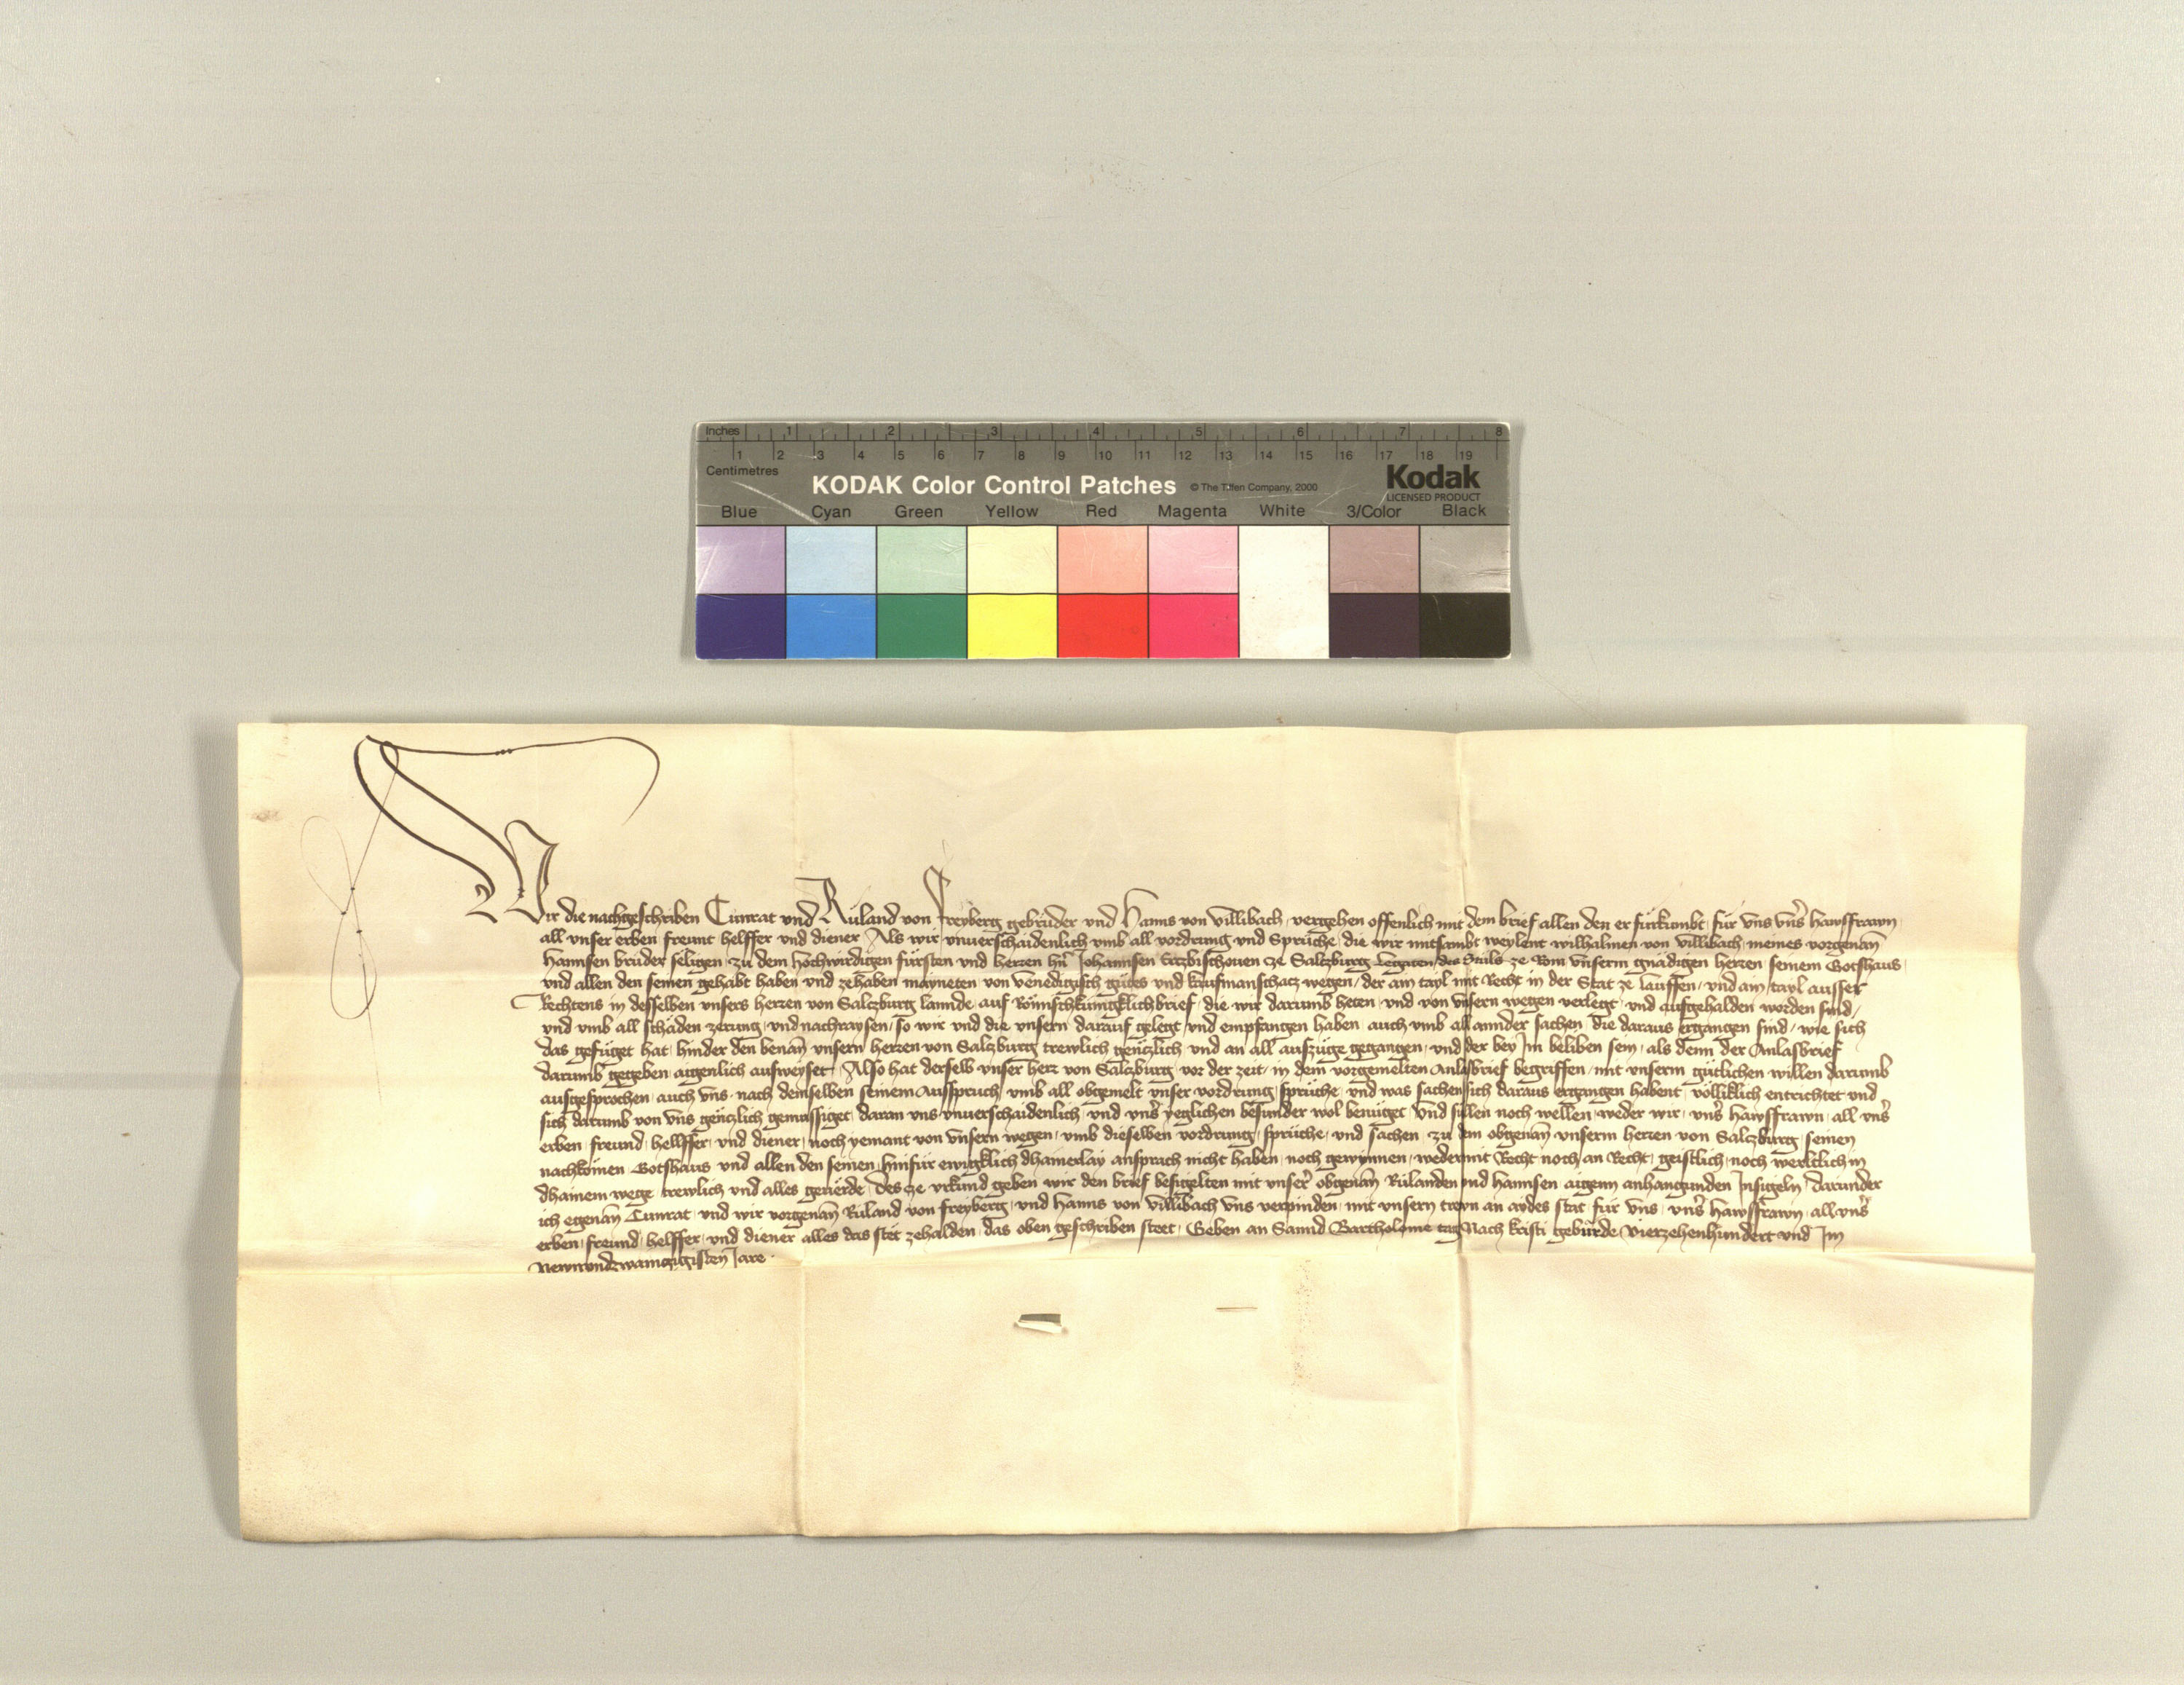 Inches 1 2 3 4 5 6 7 8
1 2 3 4 5 6 7 8 9 10 11 12 13 14 15 16 17 18 19
Centimetres
KODAK Color Control Patches © The Tiffen Company, 2000 Kodak
LICENSED PRODUCT
Blue Cyan Green Yellow Red Magenta White 3/Color Black
Wir die nachgeschriben Cunrat und Rüland von Freyberg gebrüder und Hanns von Villibach vergehen offenlich mit dem brief allen den er fürkumbt für vns vns̉ hawsfrawn
all vnser erben freunt helffer und diener Als wir vnuerschaidenlich vmb all vordrung und Sprüche die wir mitsambt weylent wilhalmen von villibach meines vorgenan̄
hannsen bruder seligen zu dem hochwirdigen fürsten und herren hn̄ Johannsen Erczbischouen cze Salczburg Legaten des Stuls ze Rom vnserm gnädigen herren seinem Gotshaus
und allen den seinen gehabt haben und zehaben mayneten von venedigisch gütes und kaufmanschacz wegen der am tayl mit Recht in der Stat ze lauffen und am tayl ausser
Rechtens in desselben unsers herren von Salczburg lannde auf Römischkünigklichbrief die wir darumb heten und von vnsern wegen verlegt und aufgehalden worden sind
und vmb all schäden zerung und nachraysen so wir und die vnsern darauf gelegt und empfangen haben auch vmb all annder sachen die daraus ergangen sind wie sich
das gefüget hat hinder den benan̄ unsern herren von Salczburg trewlich genczlich und an all aufzüge gegangen und der bey Im beliben sein als denn der Anlasbrief
darumb gegeben aigenlich ausweyset Also hat derselb vnser herr von Salczburg vor der zeit in dem vorgemelten Anlasbrief begriffen mit unserm gütlichen willen darumb
ausgesprochen auch vns nach demselben seinem Ausspruch vmb all obgemelt vnser vordrung sprüche und was sachen sich daraus ergangen habent völliklich entrichtet und
sich darumb von vns genczlich gemüssiget daran vns vnuerschaidenlich und vns̉ yeglichen besunder wol benüget Und süllen noch wellen weder wir vns̉ hawsfrawn all vns̉
erben freund hellffer und diener noch yemant von vnsern wegen vmb dieselben vordrung sprüche und sachen zu dem obgenan̄ unserm herren von Salczburg seinen
nachkömen Gotshaus und allen den seinen hinfür ewigklich dhainerlay ansprach nicht haben noch gewynnen weder mit Recht noch an Recht geistlich noch werltlich in
dhainem wege trewlich und alles geuerde Des ze vrkund geben wir den brief besigelten mit unser̉ obgenan̄ Rülanden und hannsen aigenn anhangunden Insigeln darunder
ich egenan̄ Cunrat und wir vorgenan̄ Rüland von freyberg und Hanns von villibach vns verpinden mit vnsern trewn an aydes stat für vns vns̉ hawsfrawn all vns̉
erben freund helffer und diener alles das stet zehalden das oben geschriben steet Geben an Sannd Bartholome tag Nach kristi gebürde vierzehenhundert und Im
Newnvndzwainczigisten Jare